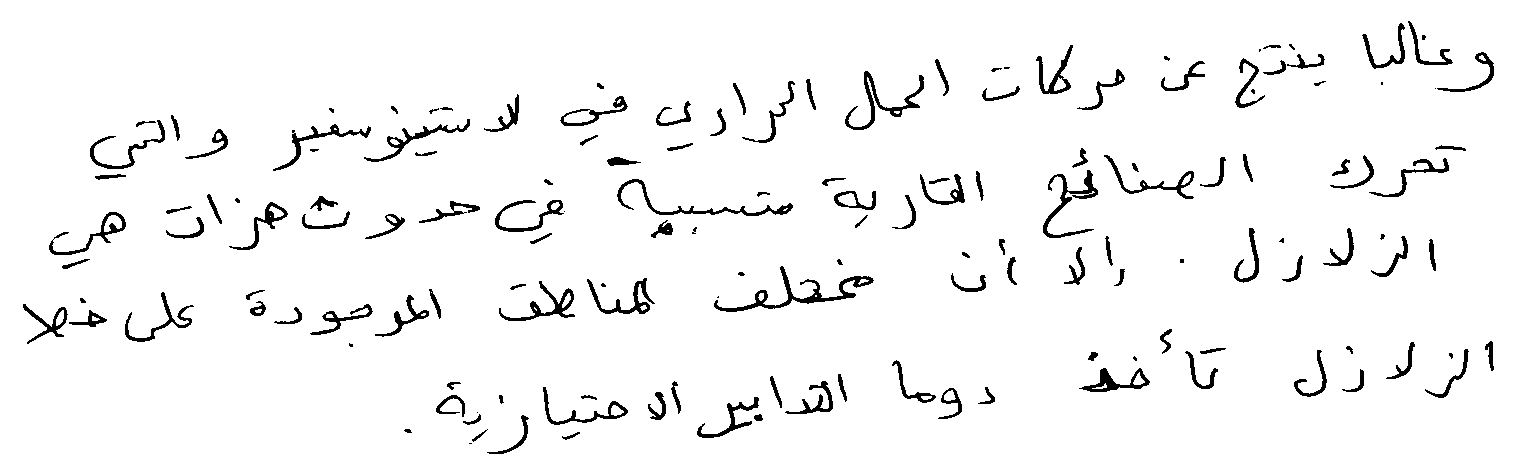 وغالبا ينتج عن حركات الحمل الحراري في لاستينوسفير والتي
تحرك الصفائح القارية متسببة في حدوث هزات هي
الزلازل . إلا أن مختلف المناطق الموجودة على خط
الزلازل تأخذ دوما التدابير الاحتيازية .